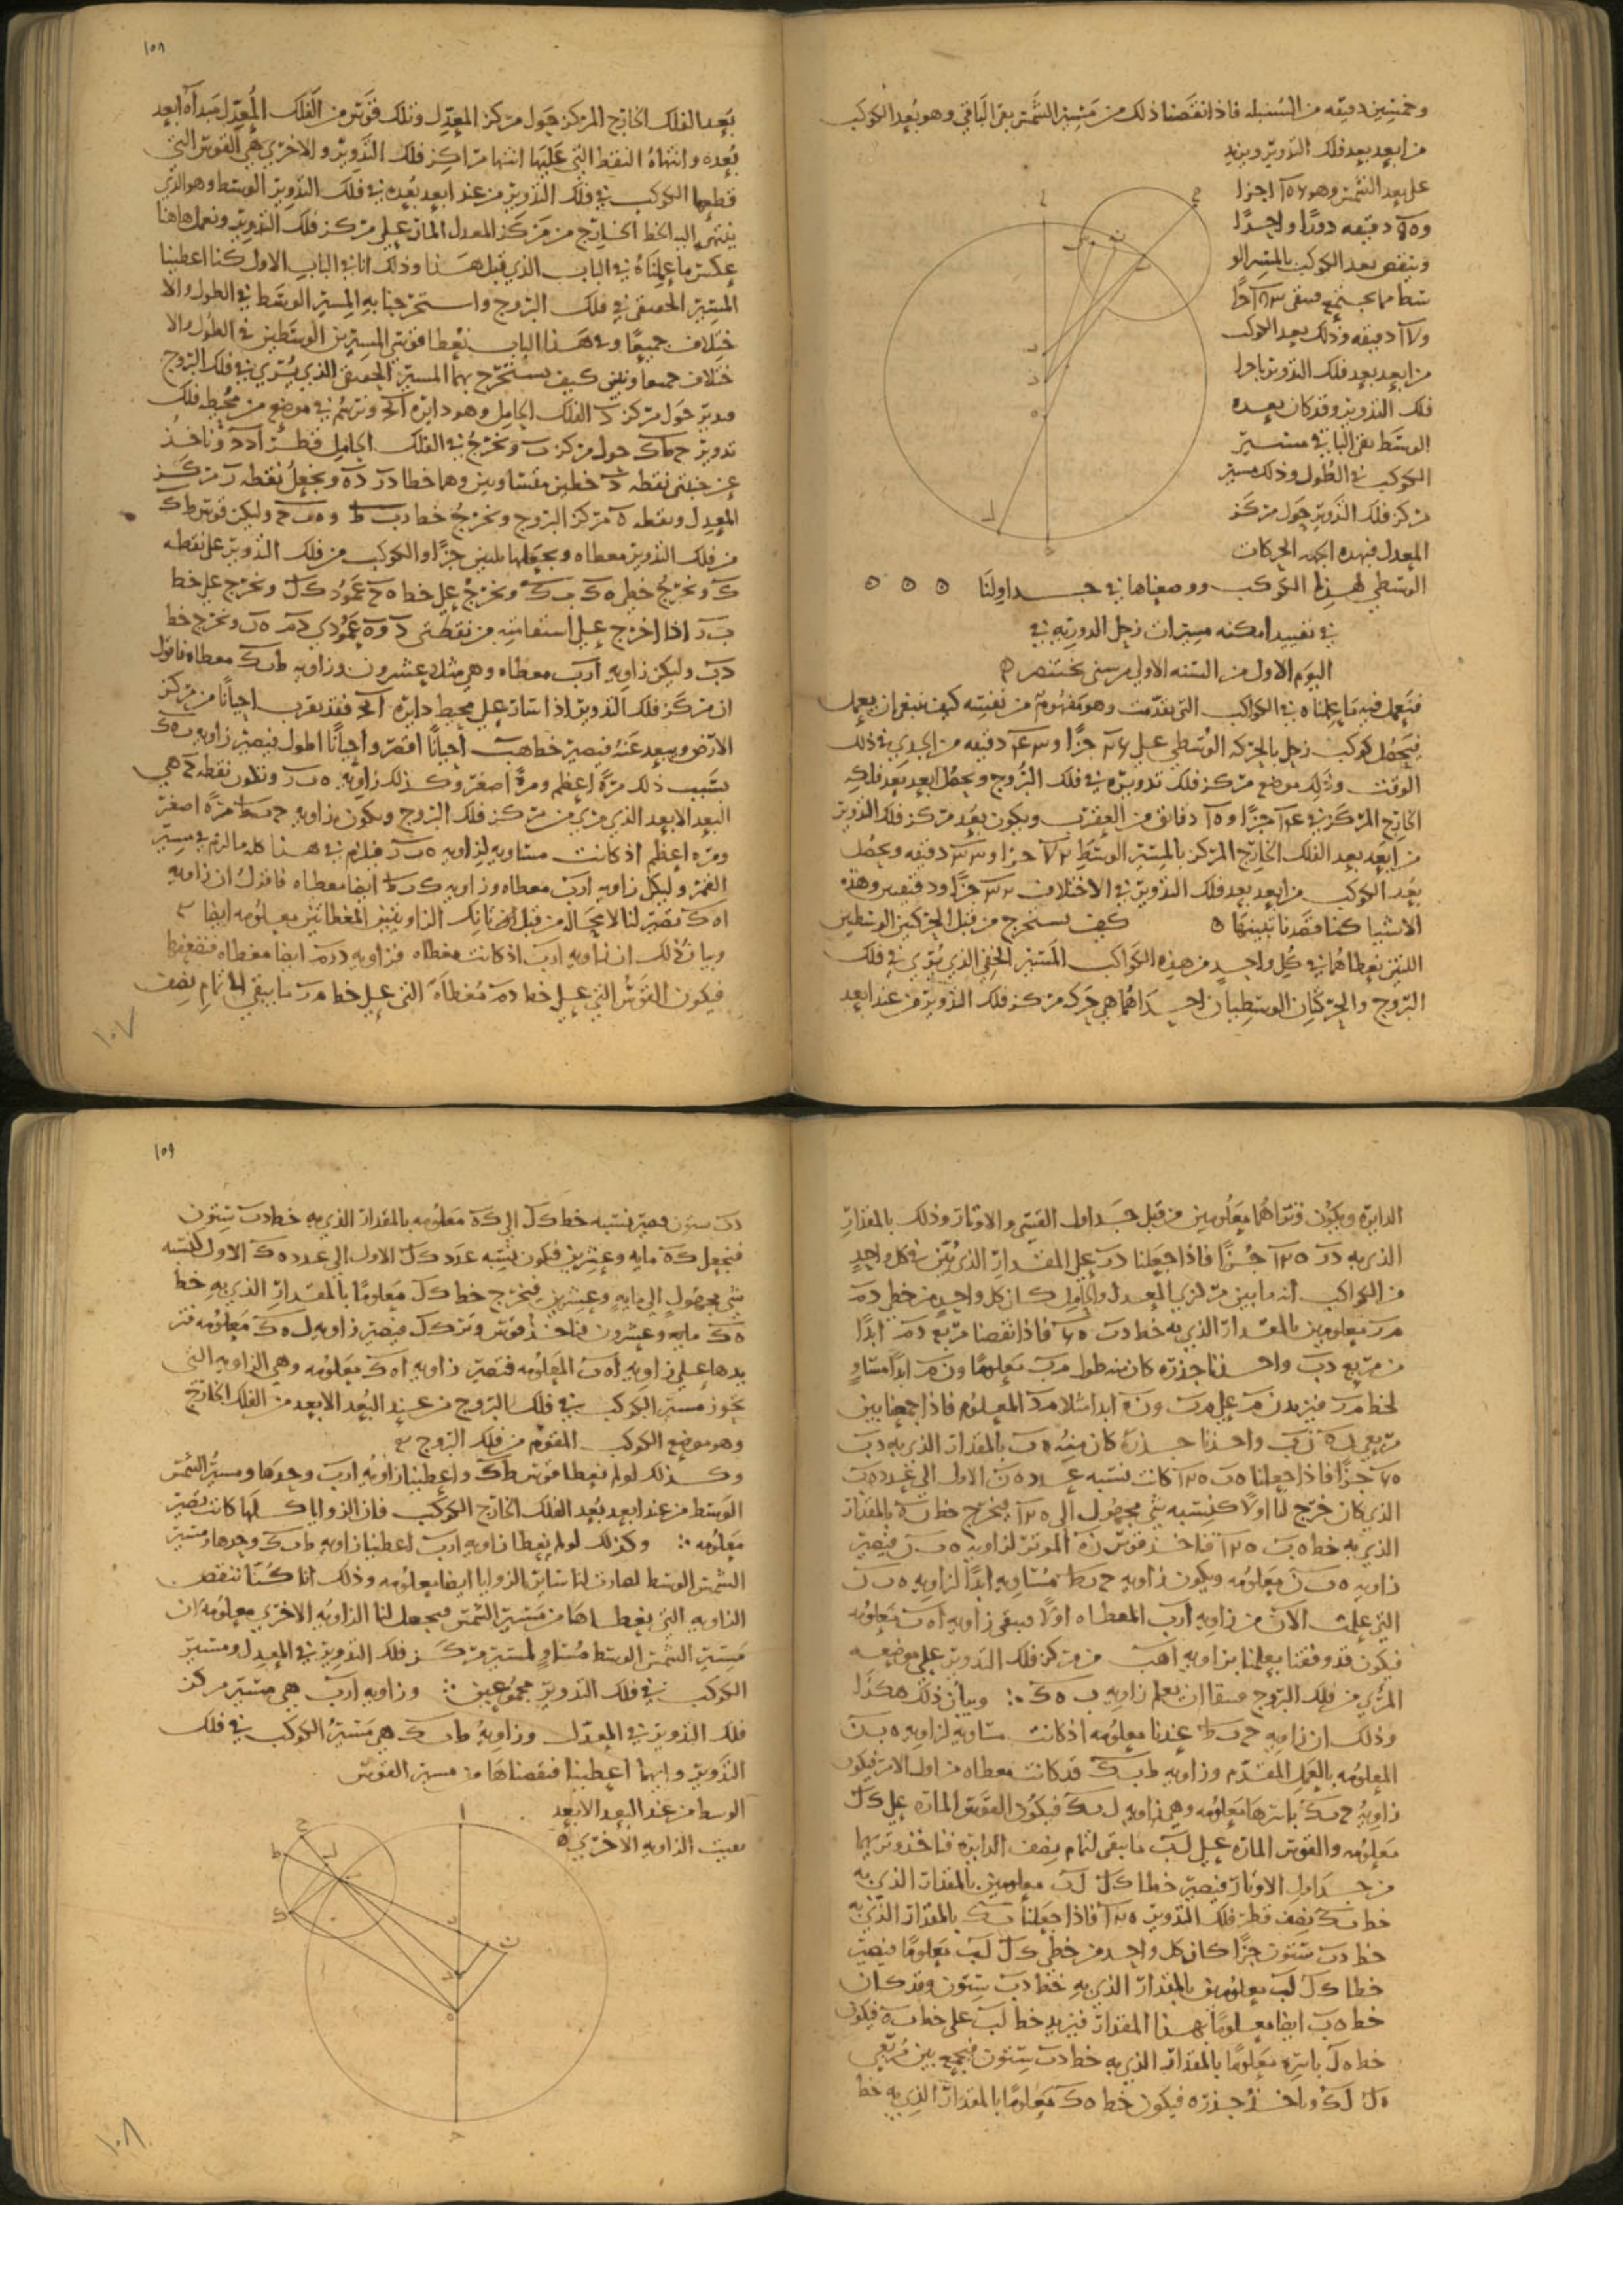 وخمسين دقيقه من السنبله فاذا نقصنا ذلك من مسير الشمس بقى الباقي وهو بعد الكوكب
من ابعد بعد فلك التدوير ونزيد
على بعد الشمس وهو اجزا
دقيقه دورا واحدا
وننقص بعد الكوكب بالمسير الو
سط مما يجتمع فيبقى
دقيقه وذلك بعد الكوكب
من ابعد بعد فلك التدوير باجزا
فلك التدوير وقد كان بعده
الوسط بقى الباقي مسير
الكوكب في الطول وذلك مسير
مركز فلك التدوير حول مركز
المعدل فبهذه الجهه الحركات
الوسطى لهذا الكوكب ووضعناها في جداولنا ه ه ه
في تقييد امكنه مسيرات زحل الدوريه في
اليوم الاول من السنه الاولى من سنى بختنصر ه
فنعمل فيه ما عملناه في الكواكب التي تقدمت وهو مفهوم من نفسه كيف ينبغي ان يعمل
فيحصل كوكب زحل بالحركه الوسطى على جزا و دقيقه من الجدي في ذلك
الوقت وذلك موضع مركز فلك تدويره في فلك البروج ويحصل ابعد بعد فلكه
الخارج المركز في جزا و دقائق من العقرب ويكون بعد مركز فلك التدوير
من ابعد بعد الفلك الخارج المركز بالمسير الوسط جزا و دقيقه ويحصل
بعد الكوكب من ابعد بعد فلك التدوير في الاختلاف جزا ودقيقتين وهذه
الاشيا كنا قصدنا تبيينها ه كيف نستخرج من قبل الحركتين الوسطيين
اللتين نعطاهما في كل واحد من هذه الكواكب المسير الحقى الذي يرى في فلك
البروج والحركتان الوسطيان احداهما هي حركه مركز فلك التدوير من عند ابعد
١٥٨
بعد الفلك الخارج المركز حول مركز المعدل وتلك قوس من الفلك المعدل مبداه ابعد
بعده وانتهاه النقط التي عليها انتها مراكز فلك التدوير والاخرى هي القوس التي
قطعها الكوكب في فلك التدوير من عند ابعد بعده في فلك التدوير الوسط وهو الذي
ينتهى اليه الخط الخارج من مركز المعدل المار على مركز فلك التدوير ونعمل هاهنا
عكس ما عملناه في الباب الذي قبل هذا وذلك انا في الباب الاول كنا اعطينا
المسير الحقيقى في فلك البروج واستخرجنا به المسير الوسط في الطول والا
ختلاف جميعا وفي هذا الباب نعطا قوسي المسيرين الوسطين في الطول والا
ختلاف جميعا ونبين كيف نستخرج بهما المسير الحقيقى الذي يرى في فلك البروج
فندير حول مركز د الفلك الحامل وهو دايره ونرسم في موضع من محيطه فلك
تدوير حول مركز ب ونخرج في الفلك الحامل قطر وناخذ
عن جنبتي نقطه د خطين متساويين وهما خطا در ده ونجعل نقطه ر مركز
المعدل ونقطه ه مركز البروج ونخرج خطا رب ط وه ب ح وليكن قوس طك
من فلك التدوير معطاه ونجعلها ثلثين جزا والكوكب من فلك التدوير على نقطه
ك ونخرج خطي ه ك ب ك ونخرج على خط ه ح عمود ك ل ونخرج على خط
ب ر اذا اخرج على استقامته من نقطتى د وه عمودي د م ه ن ونخرج خط
دب وليكن زاويه ارب معطاه وهي مثلا عشرون وزاويه ط ب ك معطاه فاقول
ان مركز فلك التدوير اذا سار على محيط دايره فقد يقرب احيانا من مركز
الارض ويبعد عنه فيصير خط ه ب احيانا اقصر واحيانا اطول فيصير زاويه ب ه ك
بسبب ذلك مره اعظم ومره اصغر وكذلك زاويه ه ب ر وتكون نقطه ح هي
البعد الابعد الذي يرى من مركز فلك البروج وتكون زاويه ح ب ط مره اصغر
ومره اعظم اذ كانت مساويه لزاويه ه ب ر فيلزم في هذا كله ما لزم في مسير
القمر وليكن زاويه ارب معطاه وزاويه ك ب ط ايضا معطاه فاقول ان زاويه
ا ه ك تصير لنا لا محاله من قبل الزاويتين المعطاتين معلومه ايضا
وبيان ذلك ان زاويه ارب اذ كانت معطاه فزاويه د ر م ايضا معطاه
فيكون القوس التي على خط د م معطاه التي على خط م ر ما يبقى الى تمام نصف
١٠٧
الدايره ويكون وتراهما معلومين من قبل جداول القسي والاوتار وذلك بالمقدار
الذي به در ١٢٠ جزا فاذا جعلنا در على المقدار الذي تبين في كل واحد
من الكواكب انه ما بين مركزي المعدل والحامل كان كل واحد من خطي دم
مر معلومين بالمقدار الذي به خط دب فاذا نقصنا مربع دم ابدا
من مربع دب واخذنا جذره كان منه طول م ب معلوما ون م ابدا مساو
لخط م ر فنزيد ن م على م ب ون ه ابدا مثلا م د المعلوم فاذا جمعنا بين
مربعي ن ه ن ب واخذنا جذره كان منه ه ب بالمقدار الذي به دب
جزا فاذا جعلنا ه ب كانت نسبه عدد ه ن الاول الى عدد ه ب
الذي كان خرج لنا اولا كنسبه شي مجهول الى فيخرج خط ن ه بالمقدار
الذي به خط ه ب فناخذ قوس ن ه الموتر لزاويه ه ب ن فيصير
زاويه ه ب ن معلومه ويكون زاويه ح ب ط مساويه ابدا لزاويه ه ب ن
التي علمت الان من زاويه ارب المعطاه اولا فيبقى زاويه ا ه ب معلومه
فيكون قد وقفنا بعلمنا بزاويه ا ه ب من مركز فلك التدوير على موضعه
المرئي من فلك البروج فبقا ان يعلم زاويه ب ه ك وبيان ذلك هكذا
وذلك ان زاويه ح ب ط عندنا معلومه اذ كانت مساويه لزاويه ه ب ن
المعلومه بالعمل المتقدم وزاويه ط ب ك قد كانت معطاه من اول الامر فيكون
زاويه ح ب ك باسرها معلومه وهي زاويه ل ب ك فيكون القوس الماره على ك ل
معلومه والقوس الماره على ل ب ما يبقى لتمام نصف الدايره فناخذ وتريهما
من جداول الاوتار فيصير خطا ك ل ل ب معلومين بالمقدار الذي به
خط ب ك نصف قطر فلك التدوير فاذا جعلنا ب ك بالمقدار الذي به
خط دب ستون جزا كان كل واحد من خطي ك ل ل ب معلوما فيصير
خطا ك ل ل ب معلومين بالمقدار الذي به خط دب ستون وقد كان
خط ه ب ايضا معلوما بهذا المقدار فنزيد خط ل ب على خط ب ه فيكون
خط ه ل باسره معلوما بالمقدار الذي به خط دب ستون فنجمع بين مربعي
ه ل ل ك وناخذ جذره فيكون خط ه ك معلوما بالمقدار الذي به خط
١٥٩
دب ستون فيصير نسبه خط ك ل الى ك ه معلومه بالمقدار الذي به خط دب ستون
فنجعل ك ه مايه وعشرين فيكون نسبه عدد ك ل الاول الى عدد ه ك الاول كنسبه
شي مجهول الى مايه وعشرين فنخرج خط ك ل معلوما بالمقدار الذي به خط
ه ك مايه وعشرون فناخذ قوس وتر ك ل فيصير زاويه ل ه ك معلومه فنز
يدها على زاويه ا ه ب المعلومه فتصير زاويه ا ه ك معلومه وهي الزاويه التي
تحوز مسير الكوكب في فلك البروج من عند البعد الابعد من الفلك الخارج
وهو موضع الكوكب المقوم من فلك البروج
وكذلك لو لم نعطا قوس ط ك واعطينا زاويه ارب وحدها ومسير الشمس
الوسط من عند ابعد بعد الفلك الخارج الكوكب فان الزوايا كلها كانت تصير
معلومه وكذلك لو لم نعطا زاويه ارب اعطينا زاويه ط ب ك وحدها ومسير
الشمس الوسط لصارت لنا ساير الزوايا ايضا معلومه وذلك انا كنا ننقص
الزاويه التي نعطاها من مسير الشمس فيحصل لنا الزاويه الاخرى معلومه لان
مسير الشمس الوسط مساو لمسير مركز فلك التدوير في المعدل ومسير
الكوكب في فلك التدوير مجموعين وزاويه ارب هي مسير مركز
فلك التدوير في المعدل وزاويه ط ب ك هي مسير الكوكب في فلك
التدوير وايهما اعطينا فنقصناها من مسير الشمس
الوسط من عند البعد الابعد
بقيت الزاويه الاخرى ه
١٠٨